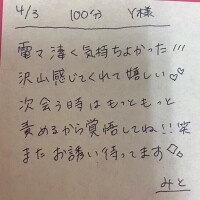 4/3 100分 Y様
電マ凄く気持ちよかった!!!
沢山感じてくれて嬉しい♡♡
次会う時はもっともっと
責めるから覚悟してね!!笑
またお誘い待ってます♡
みと